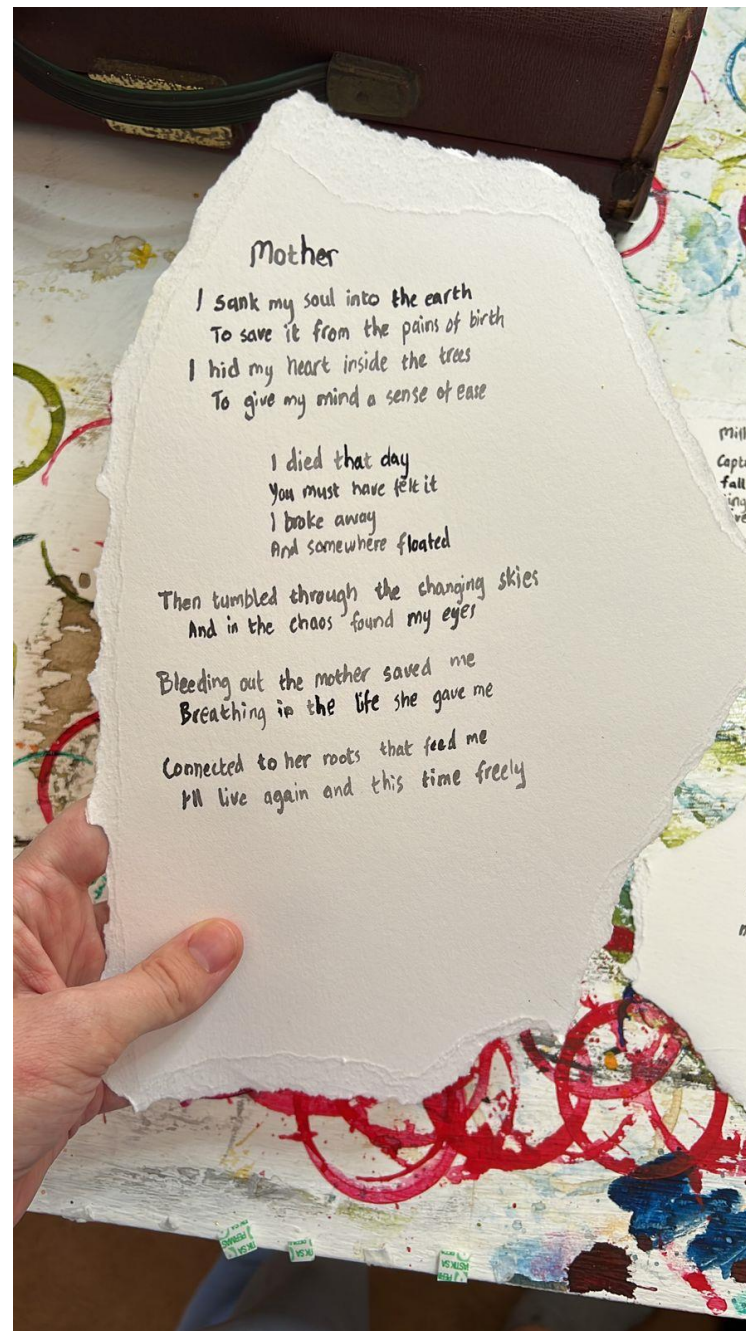 Mother
I sank my soul into the earth
To save it from the pains of birth
I hid my heart inside the trees
To give my mind a sense of ease
I died that day
You must have felt it
I broke away
And somewhere floated
Then tumbled through the changing skies
And in the chaos found my eyes
Bleeding out the mother saved me
Breathing in the life she gave me
Connected to her roots that feed me
I'll live again and this time freely